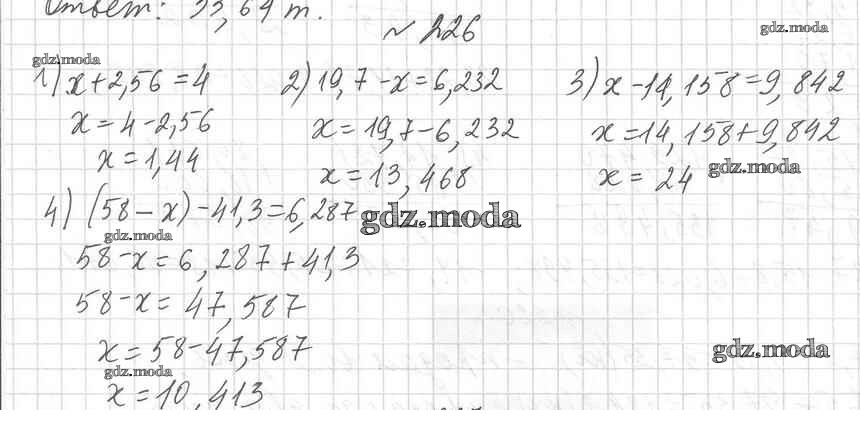 Ответ: 33,64 т.
№ 226
gdz.moda
gdz.moda
1) x + 2,56 = 4
x = 4 - 2,56
x = 1,44
2) 19,7 - x = 6,232
x = 19,7 - 6,232
x = 13,468
3) x - 14,158 = 9,842
x = 14,158 + 9,842
x = 24
gdz.moda
4) (58 - x) - 41,3 = 6,287
gdz.moda
gdz.moda
58 - x = 6,287 + 41,3
58 - x = 47,587
x = 58 - 47,587
gdz.moda
gdz.moda
x = 10,413